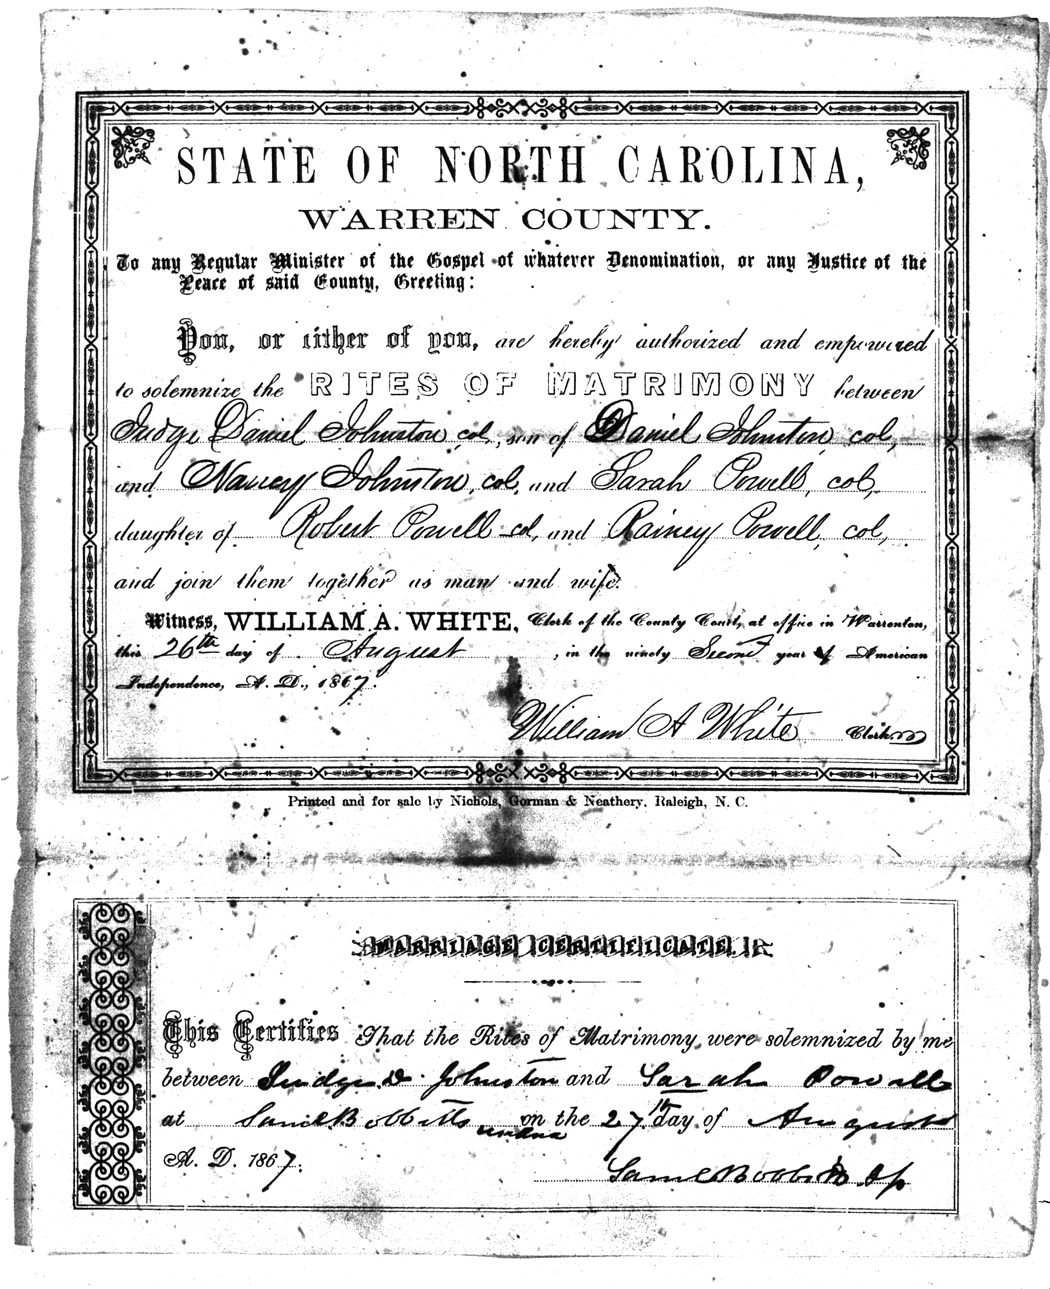 STATE OF NORTH CAROLINA,
WARREN COUNTY.
To any Regular Minister of the Gospel of whatever Denomination, or any Justice of the
Peace of said County, Greeting:
You, or either of you, are hereby authorized and empowered
to solemnize the RITES OF MATRIMONY between
Judge Daniel Johnston, col, son of Daniel Johnston, col,
and Nancy Johnston, col, and Sarah Powell, col,
daughter of Robert Powell col, and Rainey Powell, col,
and join them together as man and wife.
Witness, WILLIAM A. WHITE, Clerk of the County Court, at office in Warrenton,
this 26th day of August, in the ninety Second year of American
Independence, A. D., 1867.
William A White Clerk
Printed and for sale by Nichols, Gorman & Neathery, Raleigh, N. C.
MARRIAGE CERTIFICATE.
This Certifies That the Rites of Matrimony were solemnized by me
between Judge D. Johnston and Sarah Powell
at Saml Bobbitts on the 27th day of August
A. D. 1867.
Saml Bobbitt Jp